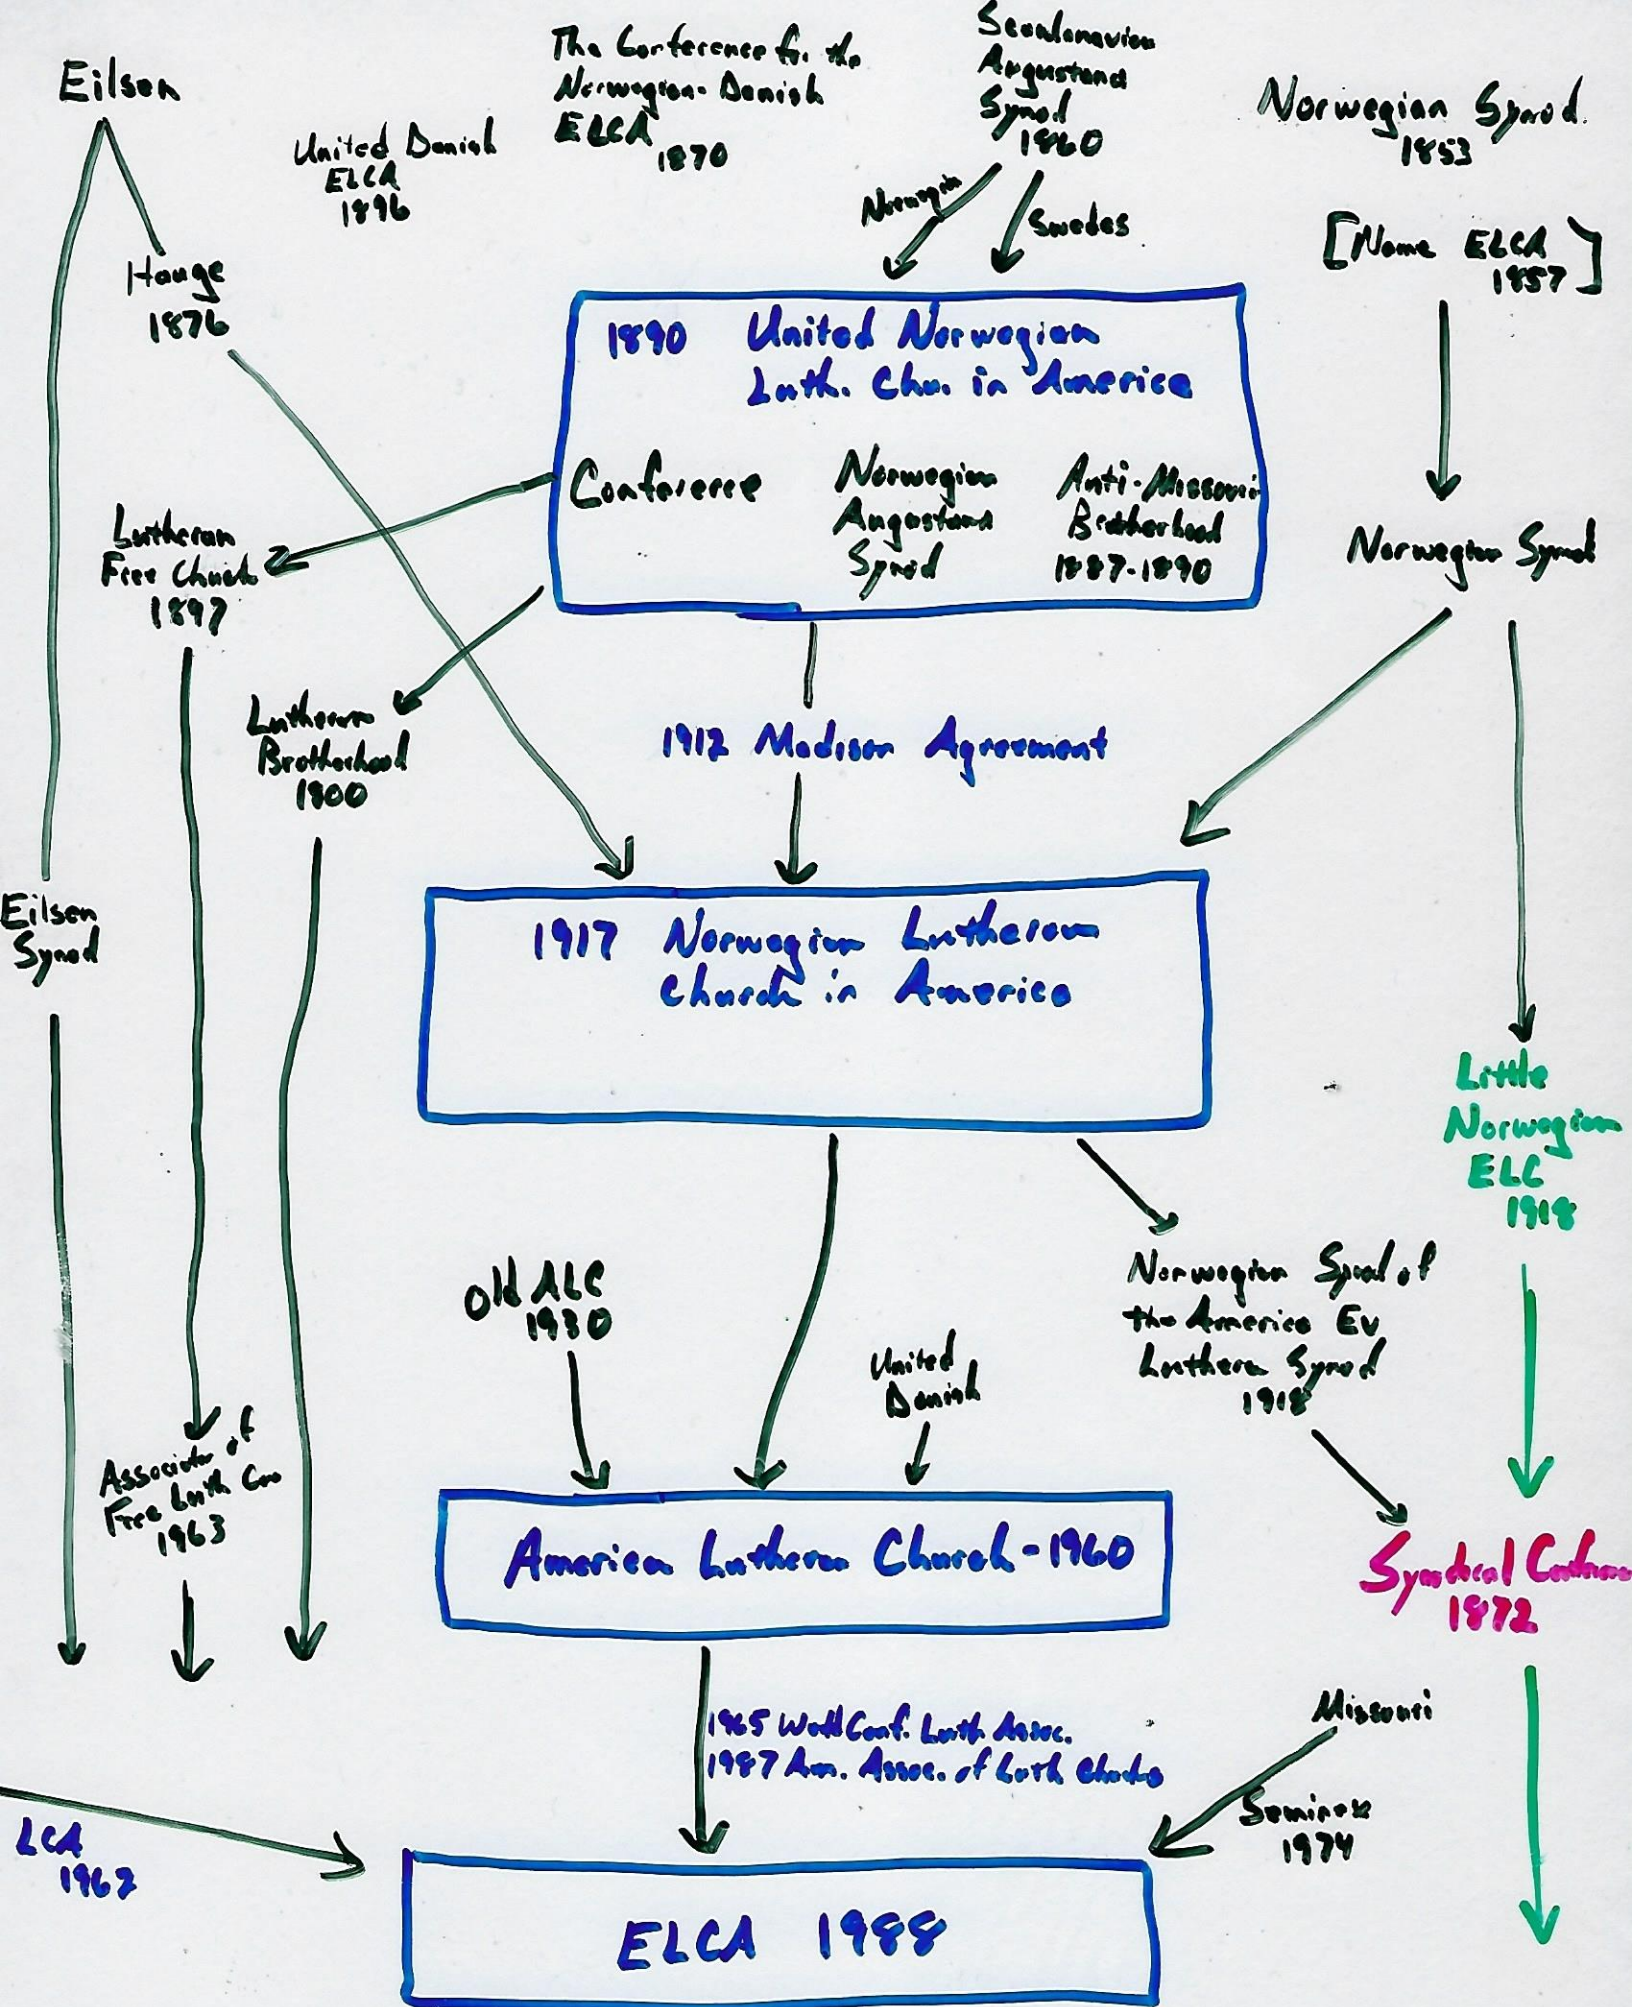 Eilsen
The Conference for the
Norwegian-Danish
ELCA
1870
Scandanavian
Augustana
Synod
1860
Norwegian Synod.
1853
United Danish
ELCA
1896
[Name ELCA
1857]
Norwegin
Swedes
Hauge
1876
1890 United Norwegian
Luth. Chu. in America
Conference
Norwegian
Augustana
Synod
Anti-Missouri
Brotherhood
1887-1890
Lutheran
Free Church
1897
Norwegian Synod
Lutheran
Brotherhood
1900
1912 Madison Agreement
Eilsen
Synod
1917 Norwegian Lutheran
Church in America
Little
Norwegian
ELC
1918
Old ALC
1930
United
Danish
Norwegian Synod of
the America Ev
Lutheran Synod
1918
Association of
Free Luth Con
1963
American Lutheran Church - 1960
Synodical
1872
1965 World Conf. Luth. Assoc.
1987 Am. Assoc. of Luth Churches
Missouri
Seminex
1974
LCA
1962
ELCA 1988